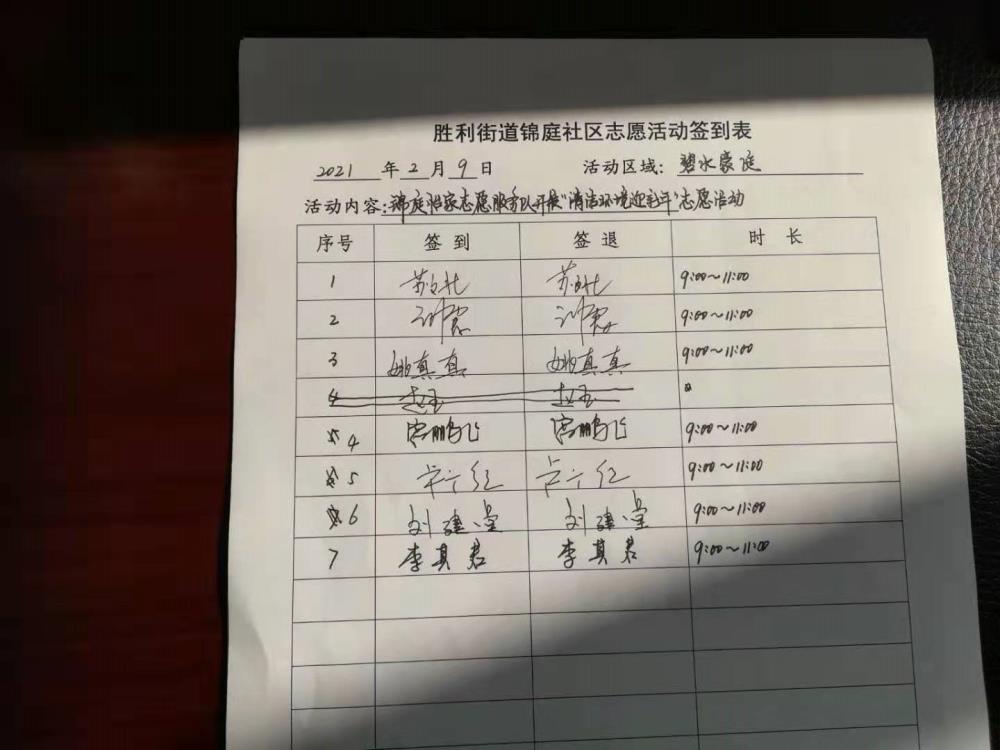 胜利街道锦庭社区志愿活动签到表
2021 年 2 月 9 日 活动区域: 碧水豪庭
活动内容: 锦庭 家志愿服务队开展"清洁环境迎 年"志愿活动
序号 签到 签退 时长
1 9:00~11:00
2 9:00~11:00
3 姚真真 姚真真 9:00~11:00
4
4 鹏飞 鹏飞 9:00~11:00
5 红 红 9:00~11:00
6 刘建 刘建 9:00~11:00
7 李其君 李其君 9:00~11:00